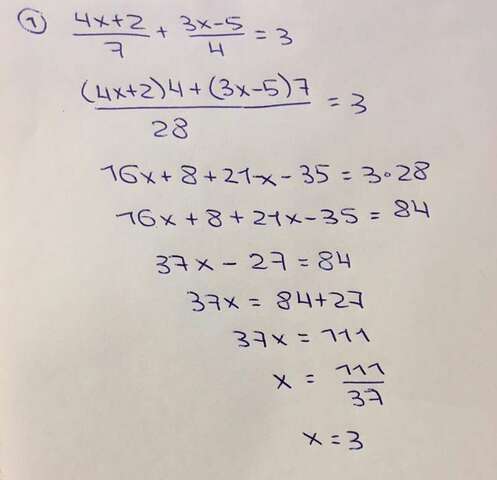 ① (4x+2)/7 + (3x-5)/4 = 3
((4x+2)4+(3x-5)7)/28 = 3
16x+8+21x-35 = 3·28
16x+8+21x-35 = 84
37x - 27 = 84
37x = 84+27
37x = 111
x = 111/37
x = 3